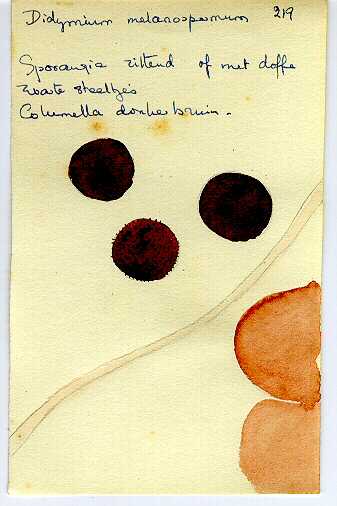 Didymium melanospermum 219
Sporangia zittend of met doffe
zwarte steeltjes
Columella donkerbruin.